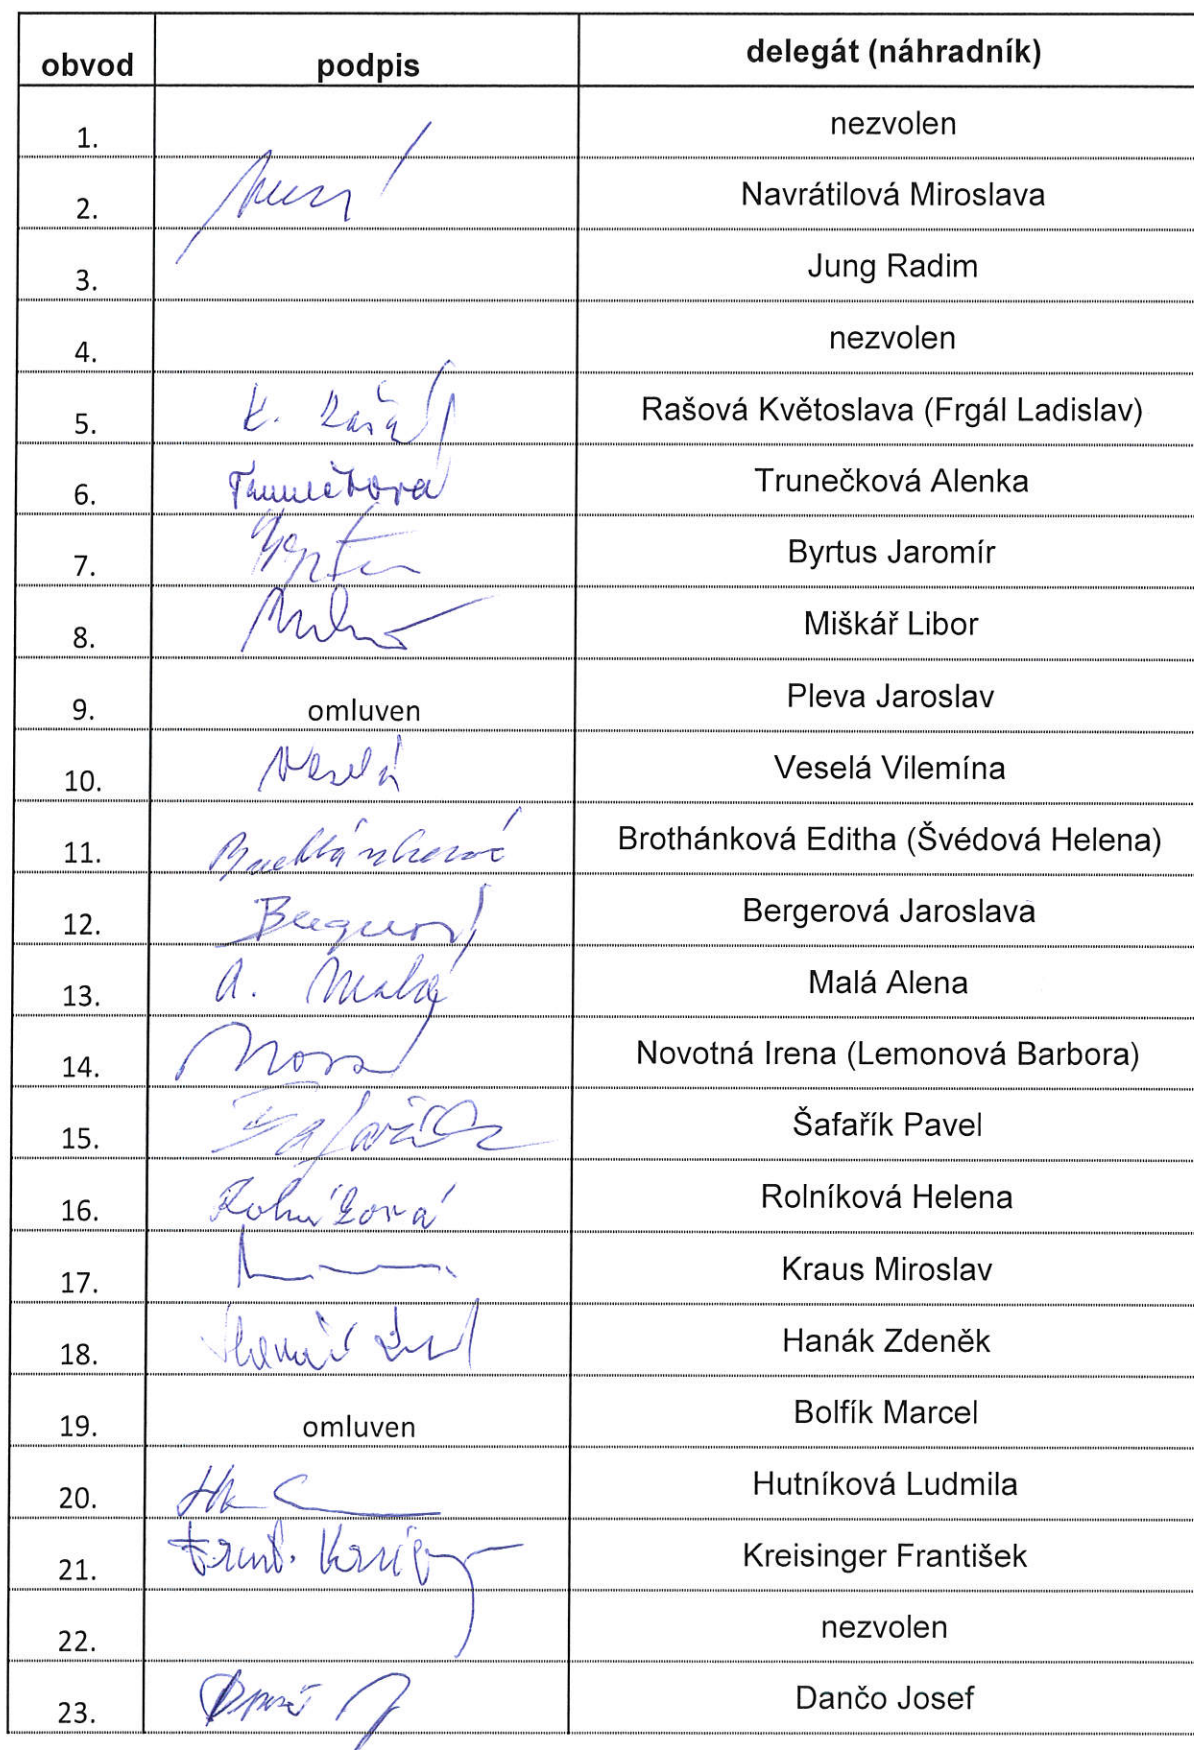 obvod podpis delegát (náhradník)
1. nezvolen
2. Navrátilová Miroslava
3. Jung Radim
4. nezvolen
5. K. Rašová Rašová Květoslava (Frgál Ladislav)
6. Trunečková Trunečková Alenka
7. Byrtus Jaromír
8. Miškář Libor
9. omluven Pleva Jaroslav
10. Veselá Veselá Vilemína
11. Brothánková Brothánková Editha (Švédová Helena)
12. Bergerová Bergerová Jaroslava
13. A. Malá Malá Alena
14. Novotná Irena (Lemonová Barbora)
15. Šafařík Šafařík Pavel
16. Rolníková Rolníková Helena
17. Kraus Miroslav
18. Hanák Zdeněk
19. omluven Bolfík Marcel
20. Hutníková Ludmila
21. Frant. Kreisinger František
22. nezvolen
23. Dančo Josef